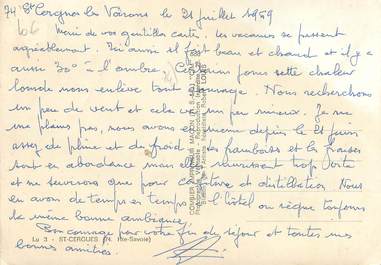 74 St Cergues les Voirons le 21 juillet 1969
Merci de vos gentilles cartes, les vacances se passent
agréablement. Ici aussi il fait beau et chaud et il y a
aussi 30° à l'ombre. cette chaleur
lourde nous enlève tout courage. Nous recherchons
un peu de vent et cela va un peu mieux. Je ne
me plains pas, nous avons eu même depuis le 21 juin
assez de pluie et de froid. les framboises et les fraises
sont en abondance mais elles murissent trop vite
et ne serviront que pour confiture et distillation. Nous
en avons de temps en temps à l'hôtel où règne toujours
la même bonne ambiance.
Bon courage pour votre fin de séjour et toutes nos
bonnes amitiés.
Lu 3 - ST-CERGUES (N. Hte-Savoie)
COMBIER IMPRIMEUR MACON